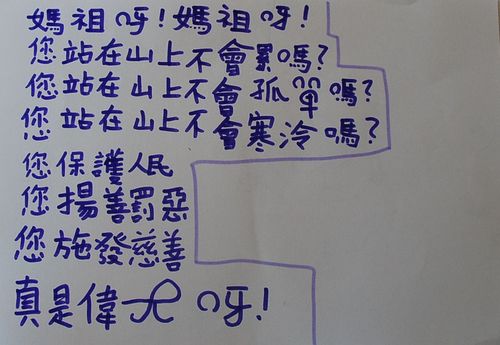 媽祖呀!媽祖呀!
您站在山上不會累嗎?
您站在山上不會孤單嗎?
您站在山上不會寒泠嗎?
您保護人民
您揚善罰惡
您施發慈善
真是偉大呀!